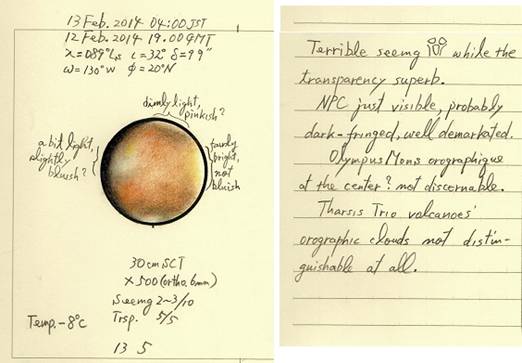 13 Feb. 2014 04:00 JST
12 Feb. 2014 19.00 GMT
λ=089°Ls ι=32° δ=9.9"
ω=130°W φ=20°N
dimly light,
pinkish?
a bit light,
slightly
bluish?
fairly
bright,
not
bluish
30cm SCT
×500 (ortho. 6mm)
Seeing 2~3/10
Temp. -8°C Trsp. 5/5
13 5
Terrible seeing while the
transparency superb.
NPC just visible, probably
dark-fringed, well demarkated.
Olympus Mons orographique
at the center? not discernable.
Tharsis Trio volcanoes'
orographic clouds not distin-
guishable at all.